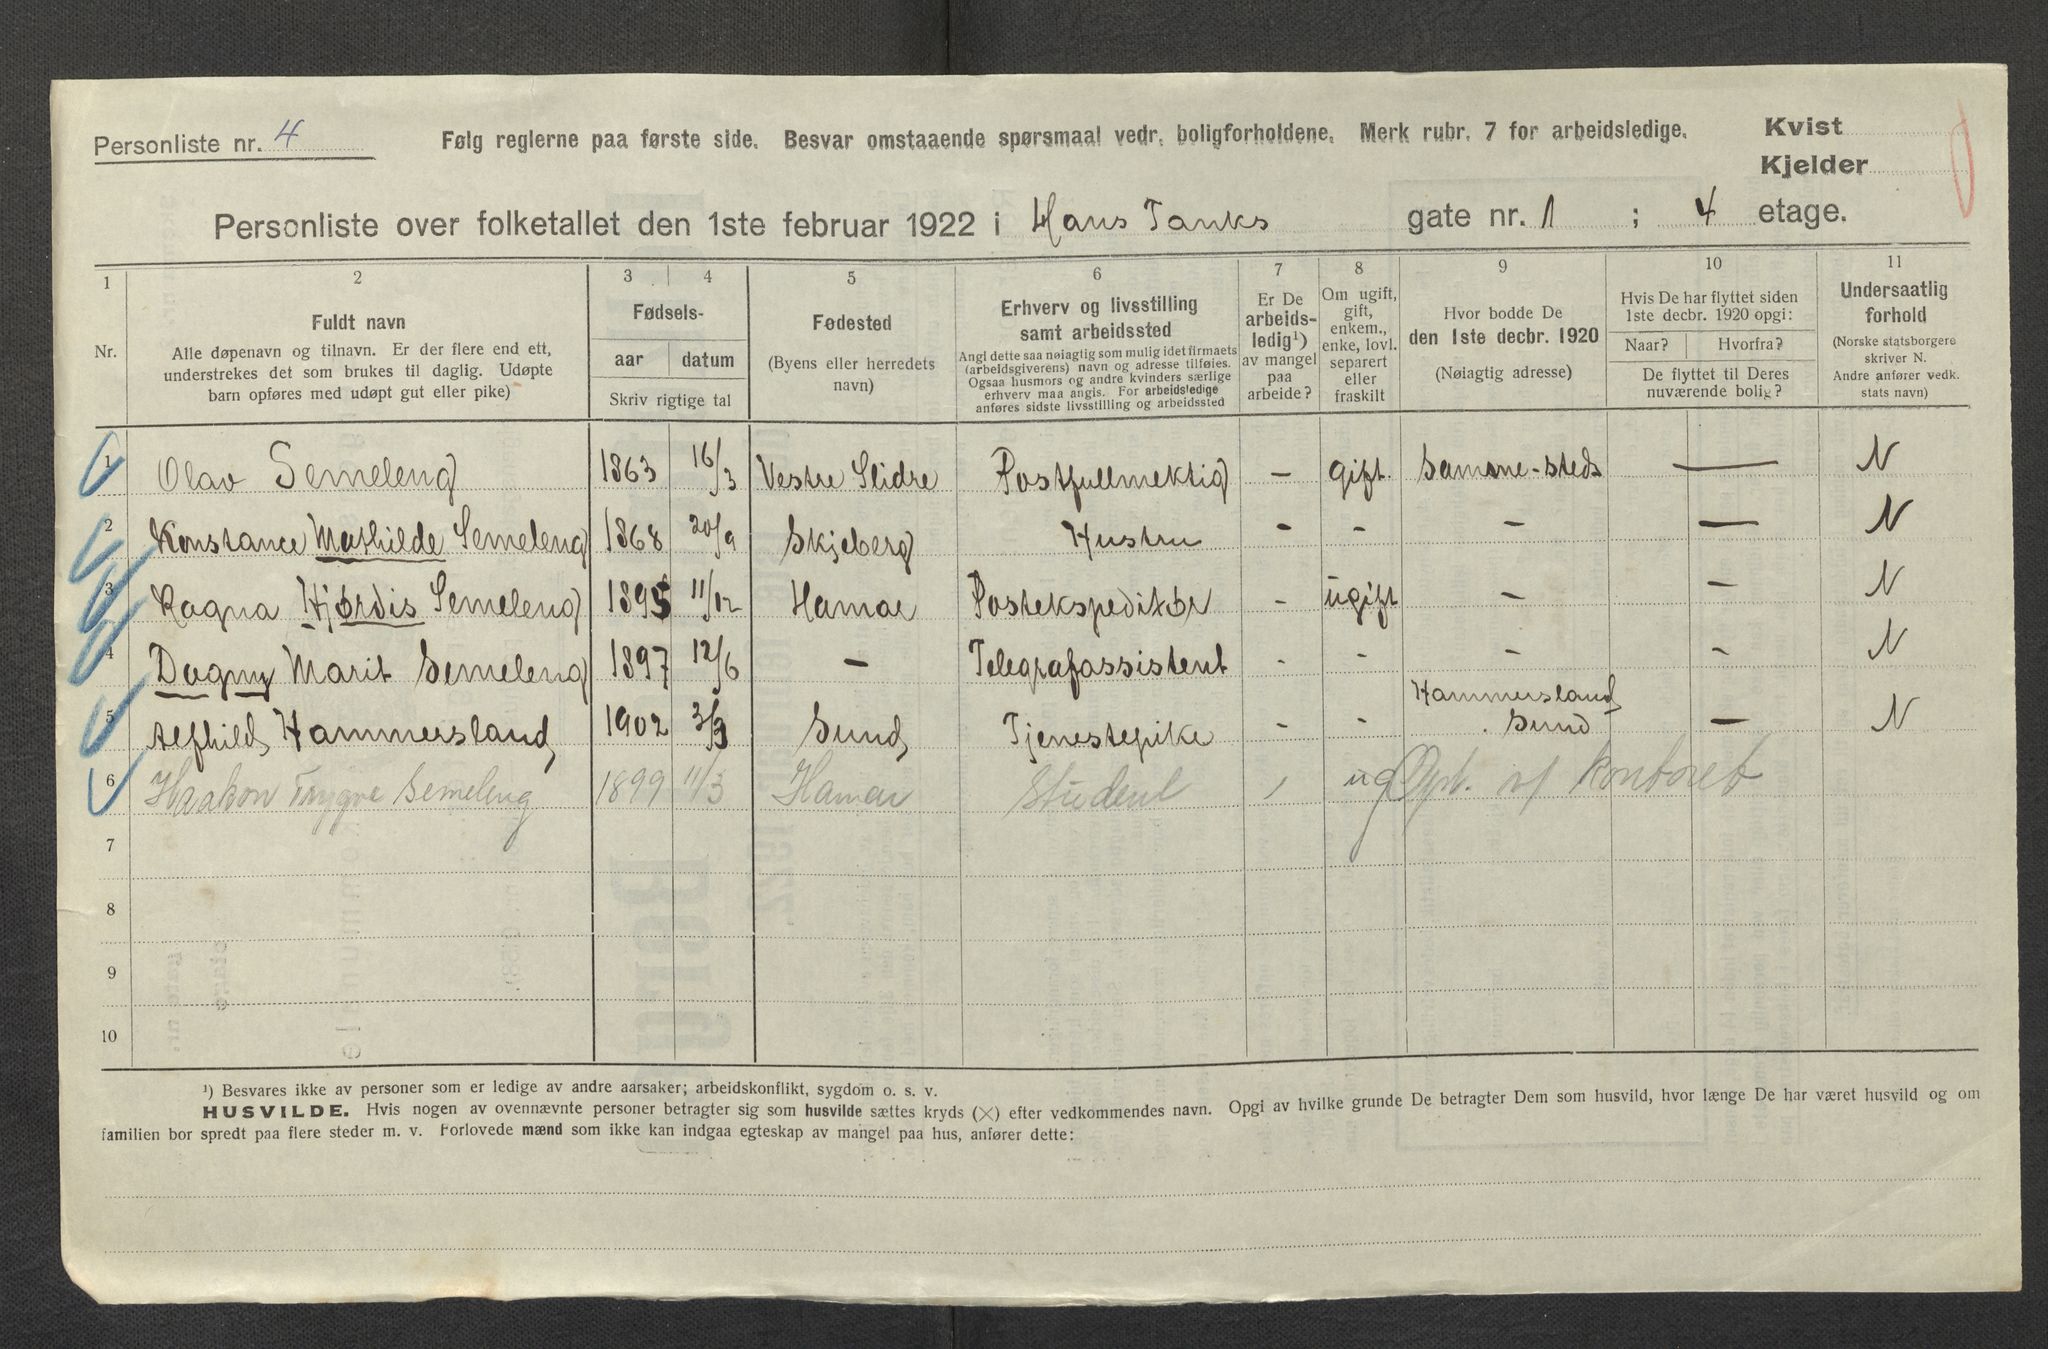 Personliste nr. 4
Følg reglerne paa første side. Besvar omstaaende spørsmaal vedr. boligforholdene. Merk rubr. 7 for arbeidsledige.
Kvist
Kjelder
Personliste over folketallet den 1ste februar 1922 i Hans Tanks gate nr. 1 ; 4 etage.
1 2 3 4 5 6 7 8 9 10 11
Nr.
Fuldt navn
Alle døpenavn og tilnavn. Er der flere end ett,
understrekes det som brukes til daglig. Udøpte
barn opføres med udøpt gut eller pike)
Fødsels-
aar datum
Skriv rigtige tal
Fødested
(Byens eller herredets
navn)
Erhverv og livsstilling
samt arbeidssted
Angi dette saa nøiagtig som mulig idet firmaets
(arbeidsgiverens) navn og adresse tilføies.
Ogsaa husmors og andre kvinders særlige
erhverv maa angis. For arbeidsledige
anføres sidste livsstilling og arbeidssted
Er De
arbeids-
ledig¹)
av mangel
paa
arbeide?
Om ugift,
gift,
enkem.,
enke, lovl.
separert
eller
fraskilt
Hvor bodde De
den 1ste decbr. 1920
(Nøiagtig adresse)
Hvis De har flyttet siden
1ste decbr. 1920 opgi:
Naar? Hvorfra?
De flyttet til Deres
nuværende bolig?
Undersaatlig
forhold
(Norske statsborgere
skriver N.
Andre anfører vedk.
stats navn)
1 Olav Semeleng 1863 16/3 Vestre Slidre Postfullmektig - gift. Samme-steds — N
2 Konstance Mathilde Semeleng 1868 20/9 Skjeberg Hustru - - - — N
3 Ragna Hjørdis Semeleng 1895 11/12 Hamar Postekspeditør - ugift - - N
4 Dagny Marit Semeleng 1897 12/6 - Telegrafassistent - - - - N
5 Alfhild Hammersland 1902 3/3 Sund Tjenestepike - - Hammersland Sund — N
6 Haakon Trygve Semeleng 1899 11/3 Hamar Student / ug Opt. af kontoret
7
8
9
10
¹) Besvares ikke av personer som er ledige av andre aarsaker; arbeidskonflikt, sygdom o. s. v.
HUSVILDE. Hvis nogen av ovennævnte personer betragter sig som husvilde sættes kryds (×) efter vedkommendes navn. Opgi av hvilke grunde De betragter Dem som husvild, hvor længe De har været husvild og om
familien bor spredt paa flere steder m. v. Forlovede mænd som ikke kan indgaa egteskap av mangel paa hus, anfører dette: